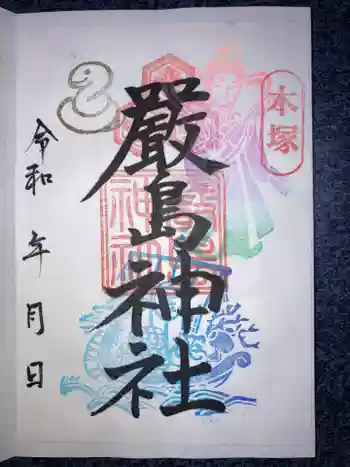 本塚
嚴島神社
令和 年 月 日